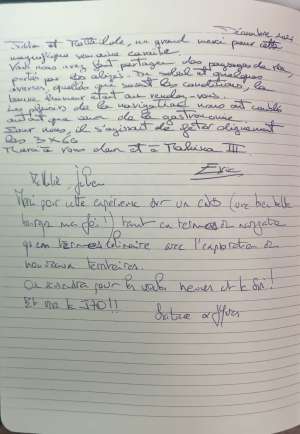 Décembre 2021
et Mathilde, un grand merci pour cette
magnifique semaine
Vous nous avez fait partager des paysages de rêve,
portés par les alizés. Du soleil et quelques
averses, quelles que soient les conditions, la
bonne humeur était au rendez-vous.
Les plaisirs de la navigation nous ont comblé
autant que ceux de la gastronomie.
Pour nous, il s'agissait de fêter dignement
les 3 x 60
Merci à vous deux et à III
Eric
Julien
Merci pour cette expérience sur un cata (une bien belle
ma foi!) tant en termes de navigation
qu'en termes culinaire avec l'exploration de
nouveaux territoires.
On reviendra pour la
Et vive le !!